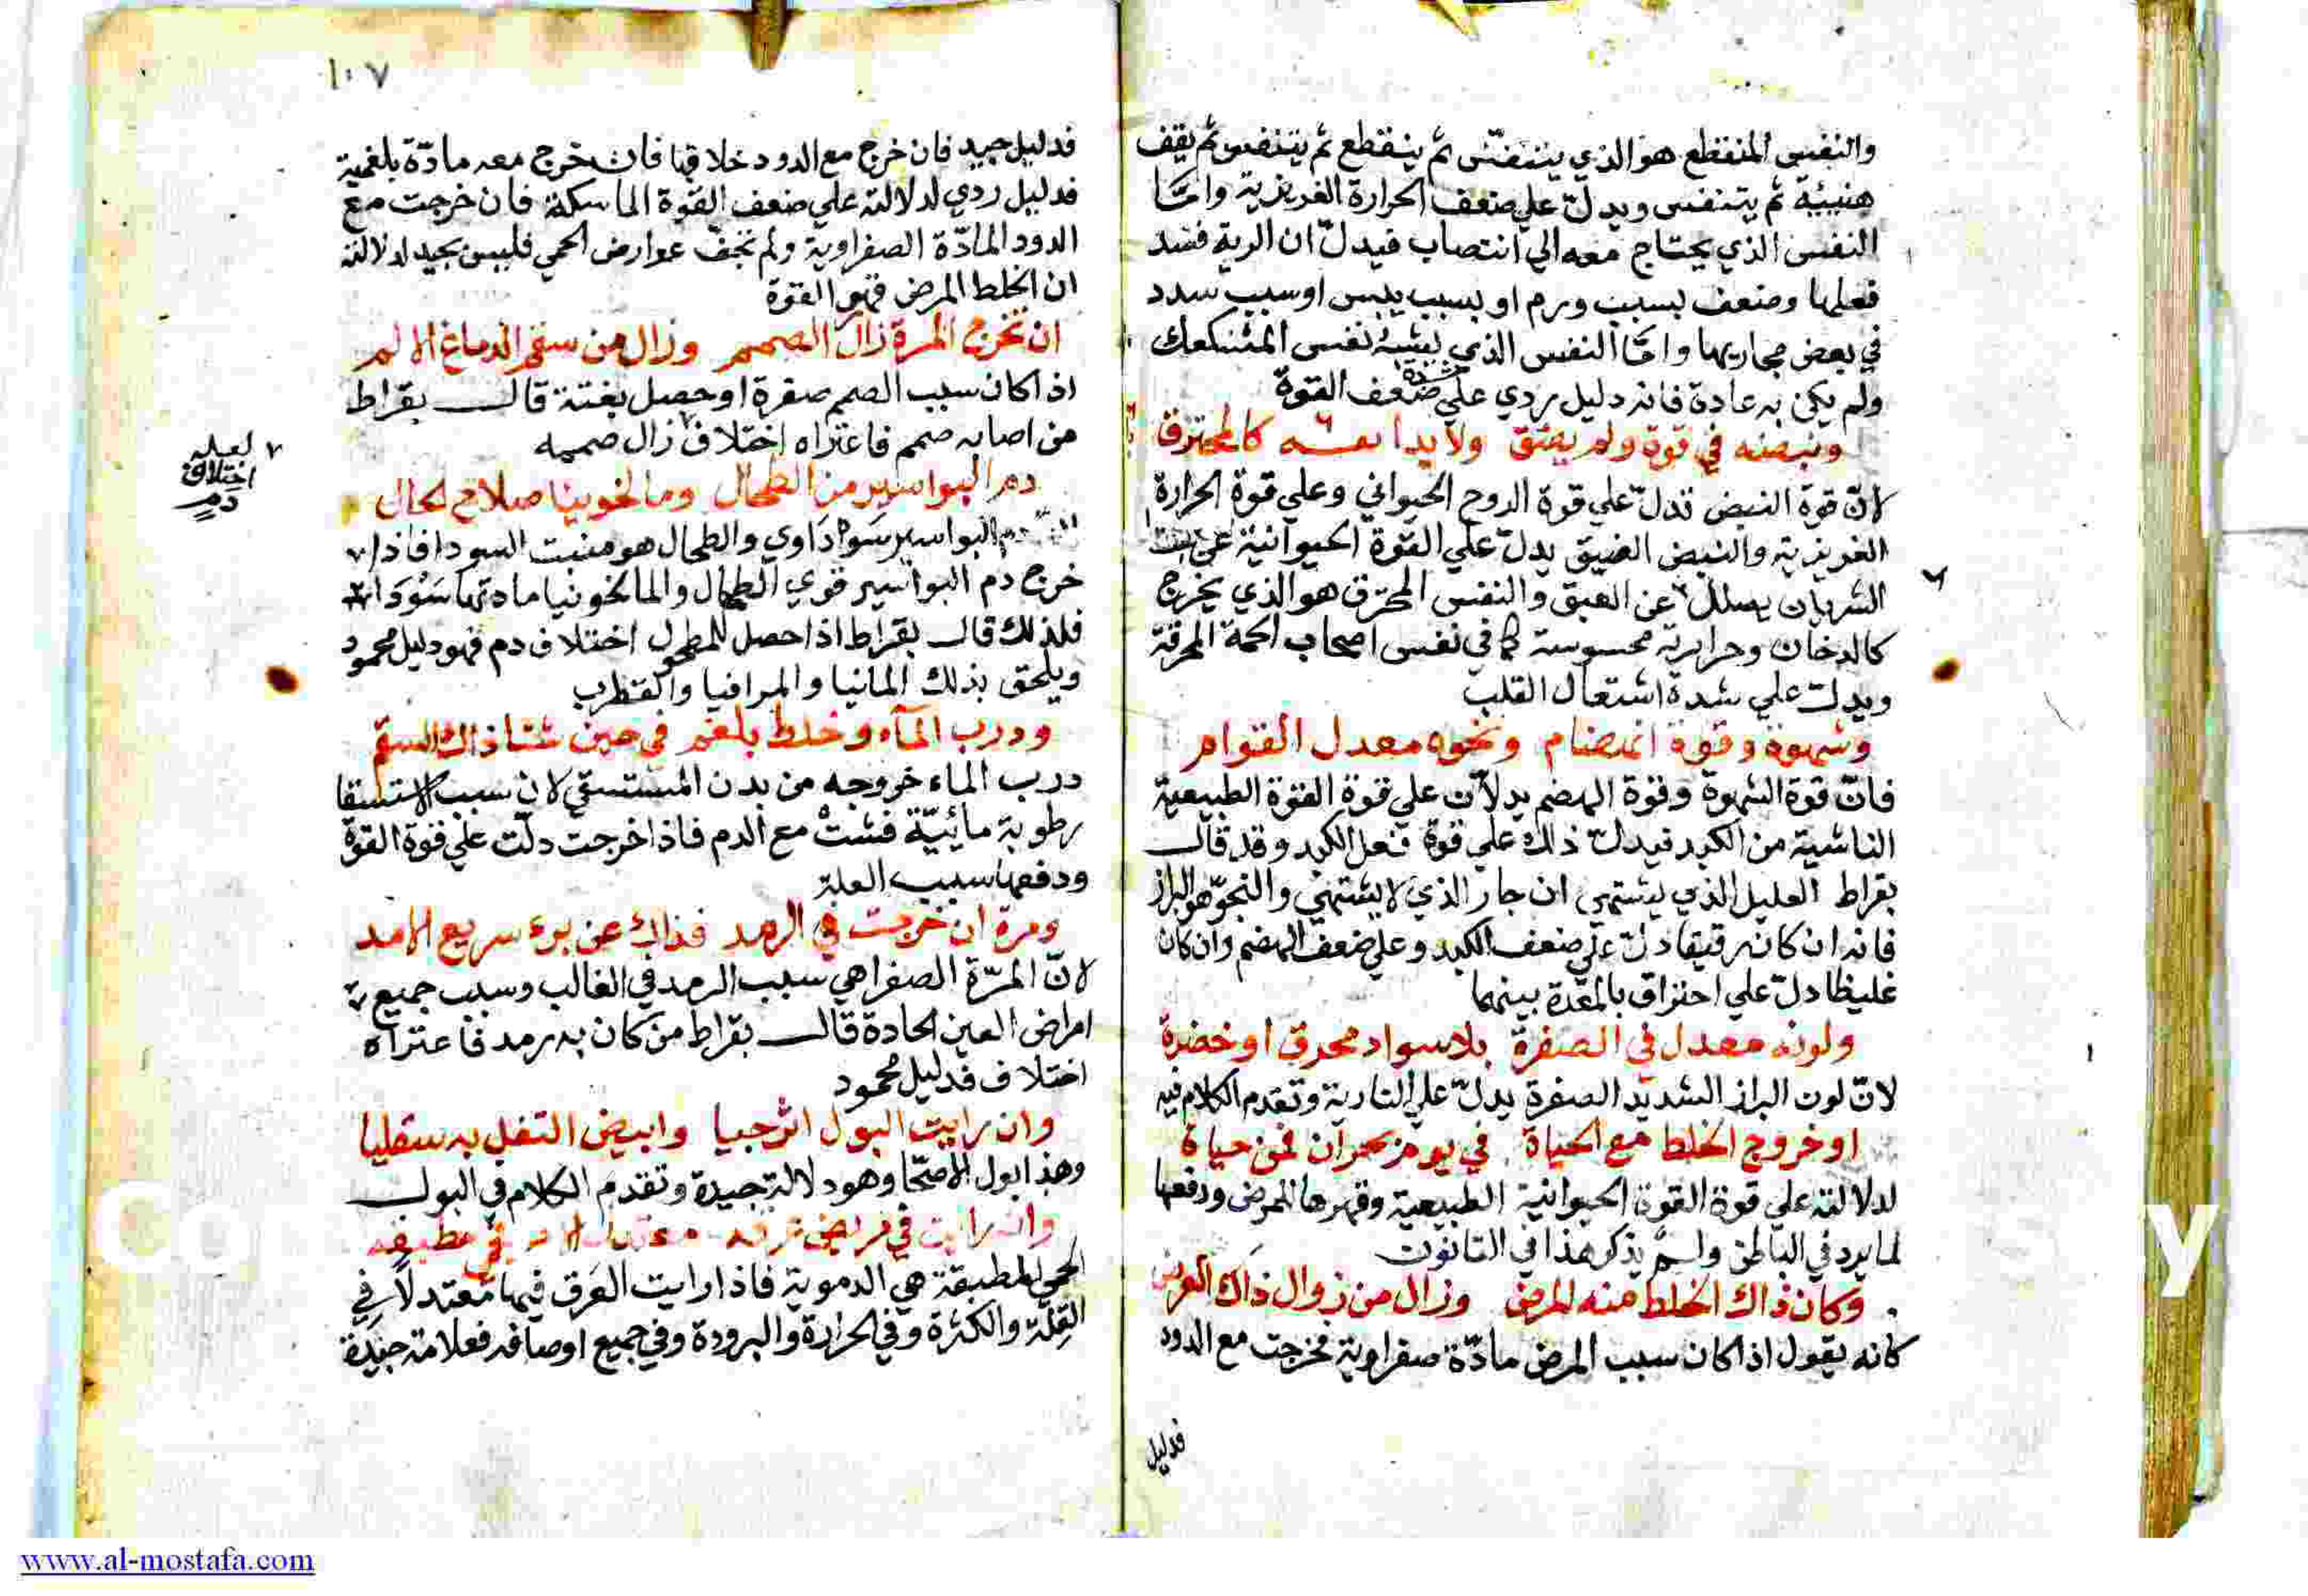 والنفس المنقطع هو الذي يتنفس ثم ينقطع ثم يتنفس ثم يقف
هنيئة ثم يتنفس ويدل علي ضعف الحرارة الغريزية وامّا
النفس الذي يحتاج معه الي انتصاب فيدلّ ان الرية فسد
فعلها وضعف بسبب ورم او بسبب يبس او سبب سدد
في بعض مجاريها وامّا النفس الذي يشبه نفس
ولم يكن به عادة فانه دليل ردي علي شدة ضعف القوة
ونبضه في قوة ولم يضق ولا بدا نفسه كالمحترق
لانّ قوة النبض تدلّ علي قوة الروح الحيواني وعلي قوة الحرارة
الغريزية والنبض الضيق يدلّ علي القوة الحيوانية
الشريان عن والنفس المحترق هو الذي يخرج
كالدخان وحرارته محسوسة كما في نفس اصحاب الحمة المحرقة
ويدل علي شدة اشتعال القلب
وشهوة وقوة انهضام ونحوه معدل القوام
فانّ قوة الشهوة وقوة الهضم يدلان علي قوة القوة الطبيعية
الناشية من الكبد فيدل ذلك علي قوة فعل الكبد وقد قال
بقراط العليل الذي يشتهي ان جار الذي لا يشتهي والنجو هو البراز
فانه ان كان رقيقا دلّ علي ضعف الكبد وعلي ضعف الهضم وان كان
غليظا دلّ علي احتراق بالمعدة بينهما
ولونه معدل في الصفرة بلا سواد محرق او خضرة
لانّ لون البراز الشديد الصفرة يدلّ علي النارية وتقدم الكلام فيه
او خروج الخلط مع الحياة في يوم بحران فمن حياة
لدلالته علي قوة القوة الحيوانية الطبيعية وقهرها للمرض ودفعها
لما يرد في الباطن ولم يذكر هذا في القانون
وكان ذاك الخلط منه المرض وزال من زوال ذاك العرض
كانه يقول اذا كان سبب المرض مادّة صفراوية فخرجت مع الدود
فدليل
١٠٧
فدليل جيد فان خرج مع الدود خلا فان خرج معه مادّة بلغمية
فدليل ردي لدلالته علي ضعف القوة الماسكة فان خرجت مع
الدود المادّة الصفراوية ولم تخف عوارض الحمي فليس بجيد لدلالته
ان الخلط الممرض قهر القوة
ان تخرج المرة زال الصمم وزال من سقم الدماغ الالم
اذا كان سبب الصمم صفرة او حصل بغتة قال بقراط
من اصابه صمم فاعتراه اختلاف زال صممه
لعله
اختلاف
دم
دم البواسير من الطحال ومالخوينا صلاح الحال
دم البواسير سوداوي والطحال هو منبت السودا فاذا
خرج دم البواسير قوي الطحال والمالخونيا مادتها سوداء
فلذلك قال بقراط اذا حصل للمطحول اختلاف دم فهو دليل محمود
ويلحق بذلك المانيا والمراقيا والقطرب
ودرب الماء وخلط بلغم في حبن شفا ذاك السقم
درب الماء خروجه من بدن المستسقي لان سبب الاستسقا
رطوبة مائيّة فشت مع الدم فاذا خرجت دلّت علي قوة القوة
ودفعها سبب العلة
ومرة ان خرجت في الرمد فذاك عن برء سريع الامد
لانّ المرّة الصفرا هي سبب الرمد في الغالب وسبب جميع
امراض العين الحادة قال بقراط من كان به رمد فاعتراه
اختلاف فدليل محمود
وان رايت البول اترجيا وابيض الثفل به سفليا
وهذا بول الاصحّا وهو دلالة جيدة وتقدم الكلام في البول
وان رايت في مريض عرقه معتدلا في مطبقه
الحمي المطبقة هي الدموية فاذا رايت العرق فيها معتدلا في
القلّة والكثرة وفي الحرارة والبرودة وفي جميع اوصافه فعلامة جيدة
www.al-mostafa.com